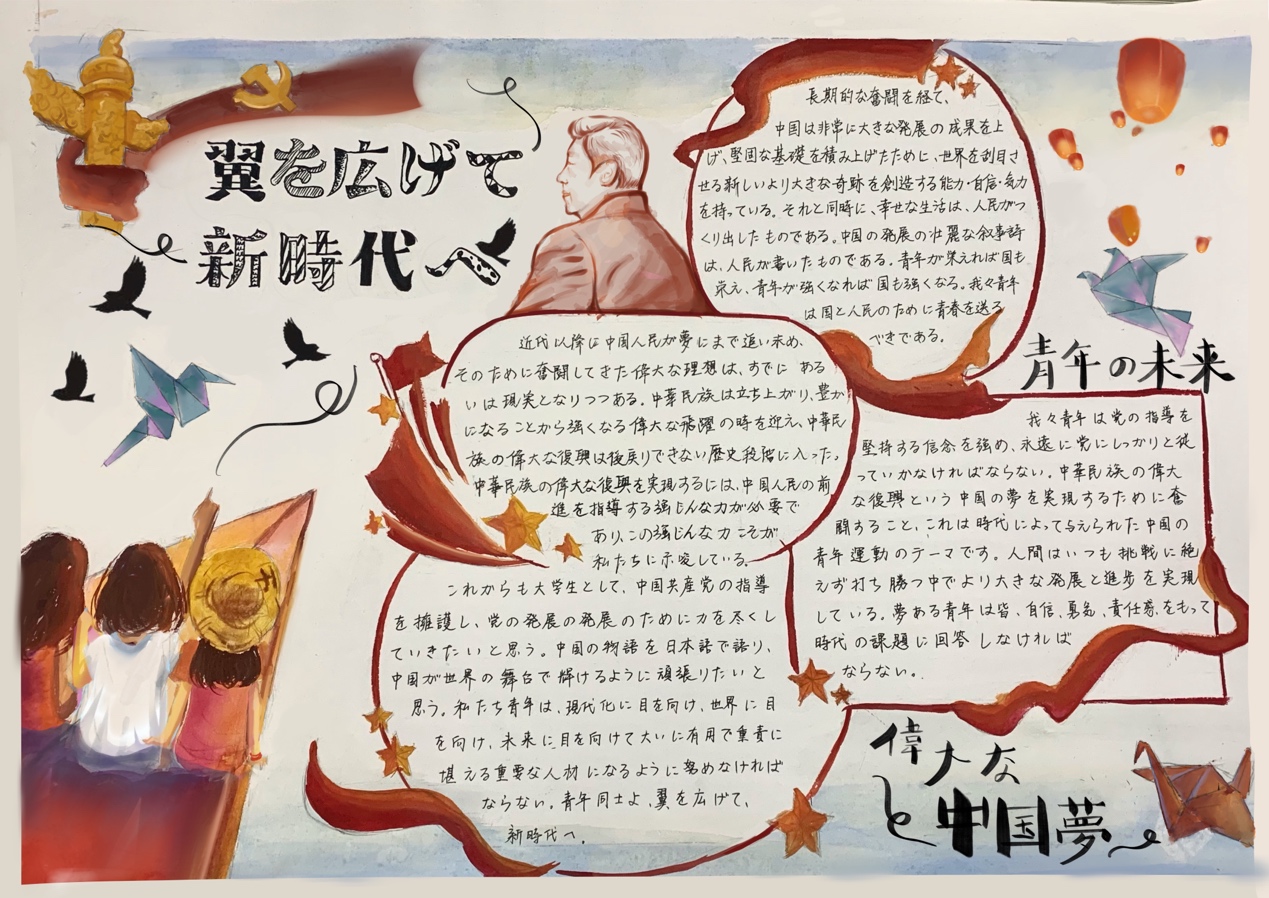 翼を広げて
新時代へ
長期的な奮闘を経て、
中国は非常に大きな発展の成果を上
げ、堅固な基礎を積み上げたために、世界を刮目さ
せる新しいより大きな奇跡を創造する能力・自信・気力
を持っている。それと同時に、幸せな生活は、人民がつ
くり出したものである。中国の発展の壮麗な叙事詩
は、人民が書いたものである。青年が栄えれば国も
栄え、青年が強くなれば国も強くなる。我々青年
は国と人民のために青春を送る
べきである。
近代以降に中国人民が夢にまで追い求め、
そのために奮闘してきた偉大な理想は、すでに ある
いは現実となりつつある。中華民族は立ち上がり、豊か
になることから強くなる偉大な飛躍の時を迎え、中華民
族の偉大な復興は後戻りできない歴史段階に入った。
中華民族の偉大な復興を実現するには、中国人民の前
進を指導する強じんな力が必要で
あり、この強じんな力こそが
私たちに示唆している。
青年の未来
我々青年は党の指導を
堅持する信念を強め、永遠に党にしっかりと従
っていかなければならない。中華民族の偉大
な復興という中国の夢を実現するために奮
闘すること、これは時代によって与えられた中国の
青年運動のテーマです。人間はいつも挑戦に絶
えず打ち勝つ中でより大きな発展と進歩を実現
している。夢ある青年は皆、自信、勇気、責任感をもって
時代の課題に回答しなければ
ならない。
これからも大学生として、中国共産党の指導
を擁護し、党の発展の発展のために力を尽くし
ていきたいと思う。中国の物語を日本語で語り、
中国が世界の舞台で輝けるように頑張りたいと
思う。私たち青年は、現代化に目を向け、世界に目
を向け、未来に目を向けて大いに有用で重責に
堪える重要な人材になるように努めなければ
ならない。青年同士よ、翼を広げて、
新時代へ。
偉大な
と中国夢